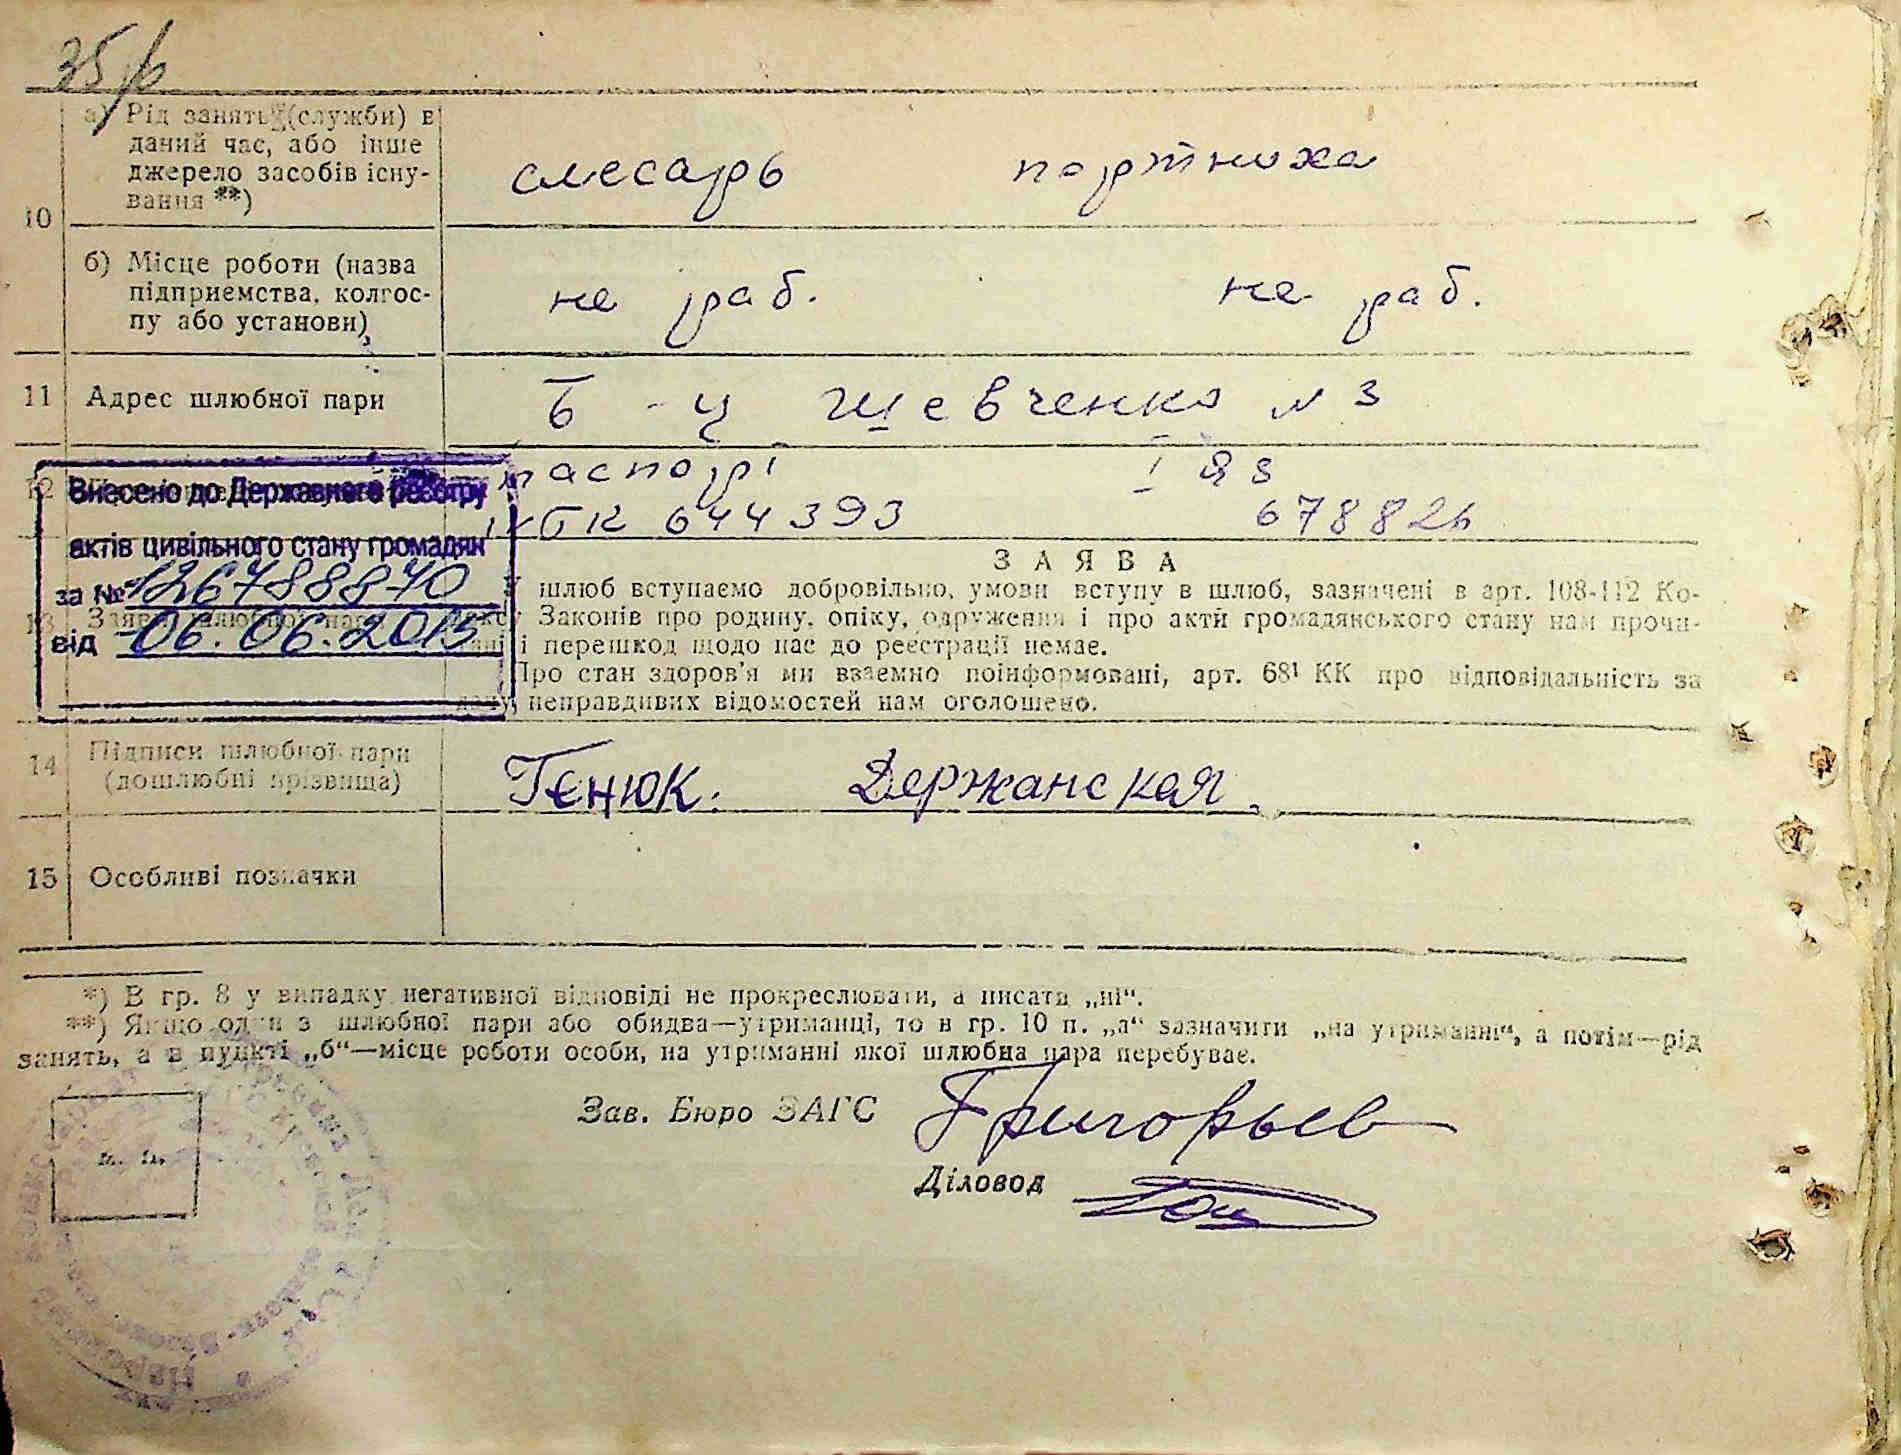 35 р
а) Рід занять (служби) в
даний час, або інше
джерело засобів існу-
вання **)
слесарь портниха
10
б) Місце роботи (назва
підприємства, колгос-
пу або установи)
не раб. не раб.
11 Адрес шлюбної пари
Б-ц Шевченко № 3
12
паспорт I ЯЗ
IV БК 644393 678826
Внесено до Державного реєстру
актів цивільного стану громадян
за № 126788870
від 06.06.2013
ЗАЯВА
13 Заява шлюбної пари
У шлюб вступаємо добровільно, умови вступу в шлюб, зазначені в арт. 108-112 Ко-
дексу Законів про родину, опіку, одруження і про акти громадянського стану нам прочи-
тані і перешкод щодо нас до реєстрації немає.
Про стан здоров'я ми взаємно поінформовані, арт. 68¹ КК про відповідальність за
дачу неправдивих відомостей нам оголошено.
14 Підписи шлюбної пари
(дошлюбні прізвища)
Генюк. Держанская.
15 Особливі позначки
*) В гр. 8 у випадку негативної відповіді не прокреслювати, а писати „ні“.
**) Якщо один з шлюбної пари або обидва—утриманці, то в гр. 10 п. „а“ зазначити „на утриманні“, а потім—рід
занять, а в пункті „б“—місце роботи особи, на утриманні якої шлюбна пара перебуває.
Зав. Бюро ЗАГС Григорьев
м. п.
Діловод